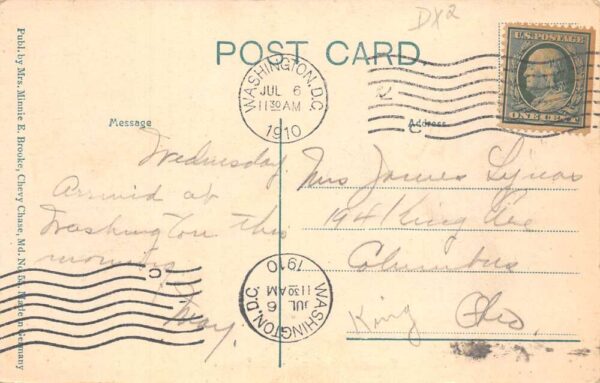 DX2
POST CARD.
U.S. POSTAGE
ONE CENT
WASHINGTON, D.C.
JUL 6
11 30 AM
1910
Message
Address
Wednesday
Arrived at
Washington this
morning
May.
Mrs James
194 King Ave
Columbus
Ohio.
King
WASHINGTON, D.C.
JUL 6
11 30 AM
1910
Publ. by Mrs. Minnie E. Brooke, Chevy Chase, Md. No. 55, Made in Germany